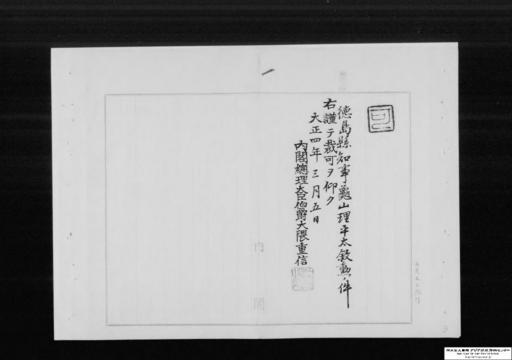 徳島縣知事龜山理平太敍勲ノ件
右謹テ裁可ヲ仰ク
大正四年三月五日
内閣總理大臣伯爵大隈重信
内閣